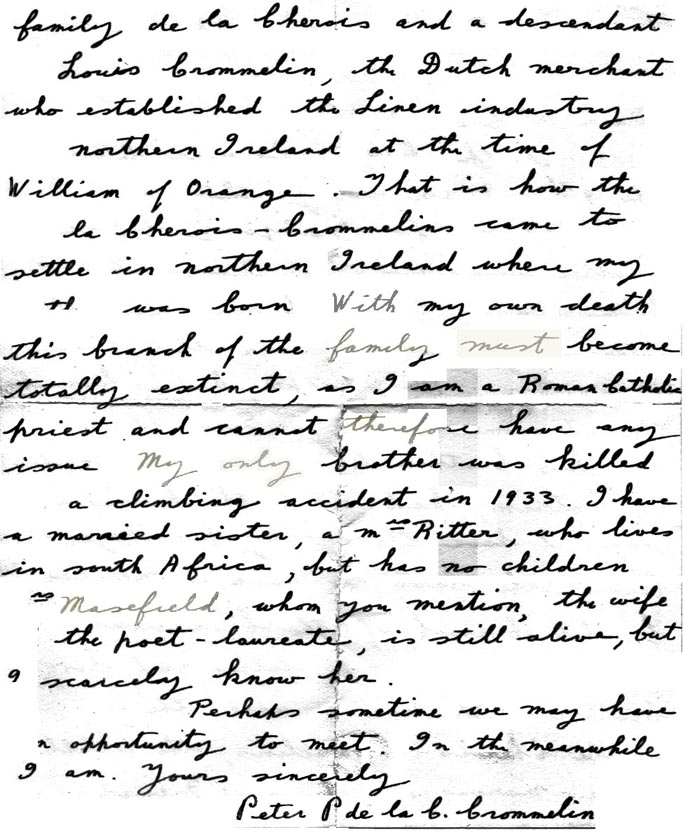 family de la Cherois and a descendant
Louis Crommelin, the Dutch merchant
who established the Linen industry
northern Ireland at the time of
William of Orange. That is how the
la Cherois-Crommelins came to
settle in northern Ireland where my
was born With my own death
this branch of the family must become
totally extinct, as I am a Roman Catholic
priest and cannot therefore have any
issue My only brother was killed
a climbing accident in 1933. I have
a married sister, a Mrs Ritter, who lives
in south Africa, but has no children
rs Masefield, whom you mention, the wife
the poet-laureate, is still alive, but
I scarcely know her.
Perhaps sometime we may have
n opportunity to meet. In the meanwhile
I am. Yours sincerely
Peter P de la C. Crommelin